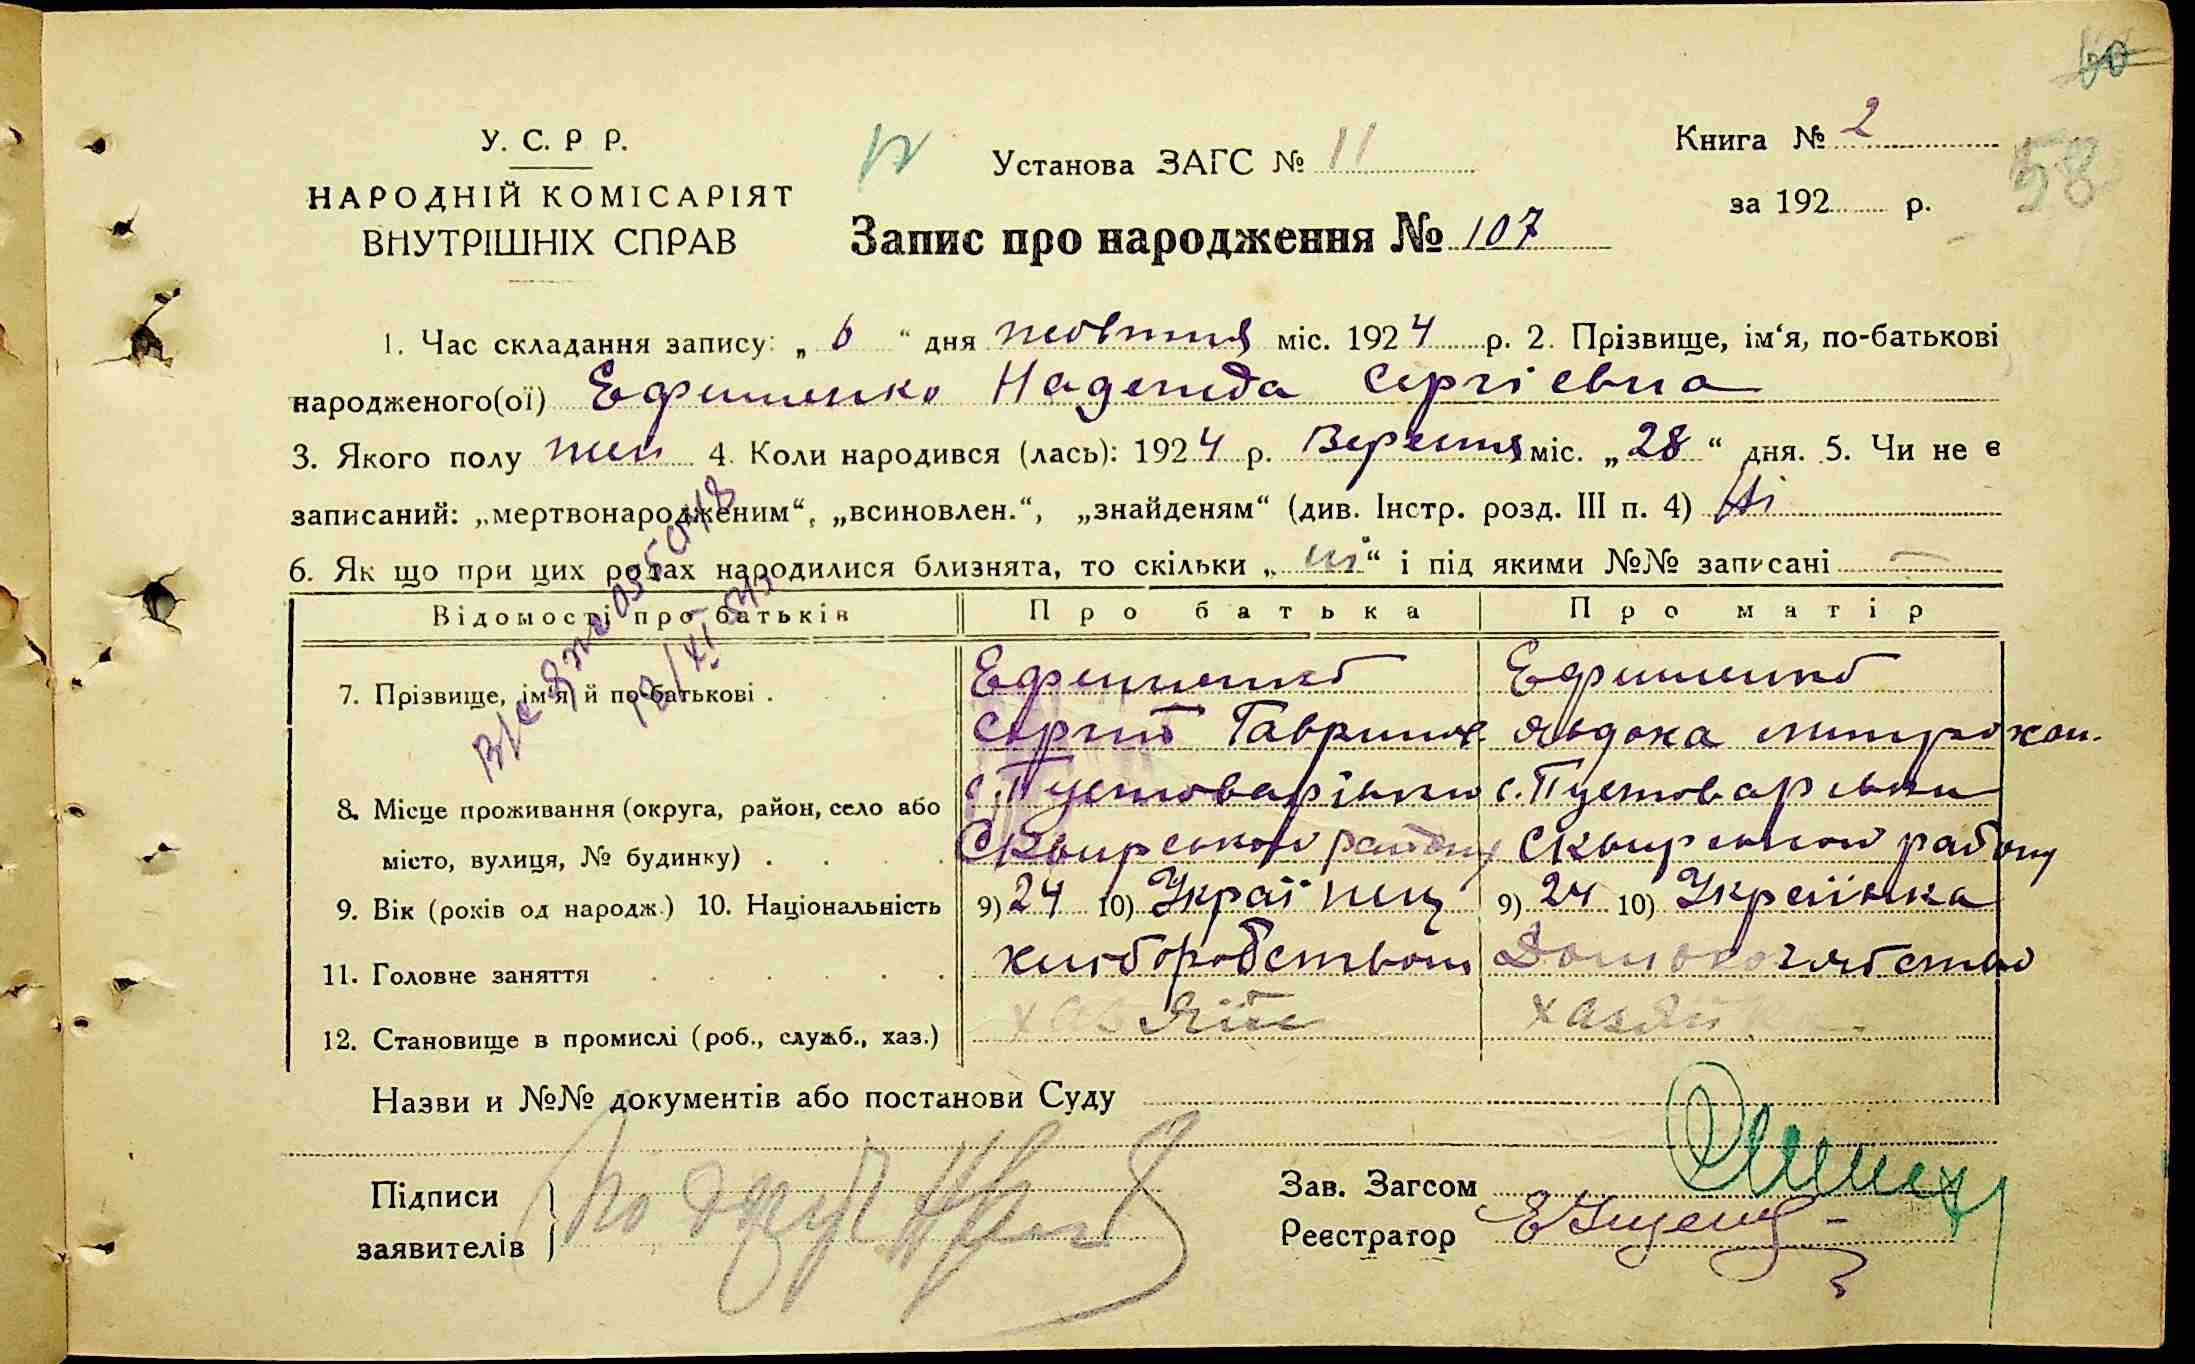 60
58
У. С. Р Р.
НАРОДНІЙ КОМІСАРІЯТ
ВНУТРІШНІХ СПРАВ
Установа ЗАГС № 11
Книга № 2
за 192 р.
Запис про народження № 107
1. Час складання запису: „ 6 “ дня жовтня міс. 1924 р. 2. Прізвище, ім‘я, по-батькові
народженого(ої) Ефименко Надежда Сергіевна
3. Якого полу жен 4. Коли народився (лась): 1924 р. Вересня міс. „28“ дня. 5. Чи не є
записаний: „мертвонародженим“, „всиновлен.“, „знайденям“ (див. Інстр. розд. III п. 4) Ні
6. Як що при цих родах народилися близнята, то скільки „ ні “ і під якими №№ записані —
Відомості про батьків Про батька Про матір
7. Прізвище, ім‘я й по-батькові . Ефименко Ефименко
Сергій Гаврилов Явдоха Митрохан.
8. Місце проживання (округа, район, село або с. Пустоварівки с. Пустоварівки
місто, вулиця, № будинку) . Сквирського району Сквирського району
9. Вік (років од народж.) 10. Національність 9) 24 10) Українец 9) 24 10) Українка
11. Головне заняття хліборобством
12. Становище в промислі (роб., служб., хаз.) хазяїн хазяйка
Назви и №№ документів або постанови Суду
Підписи
заявителів
Зав. Загсом
Реєстратор